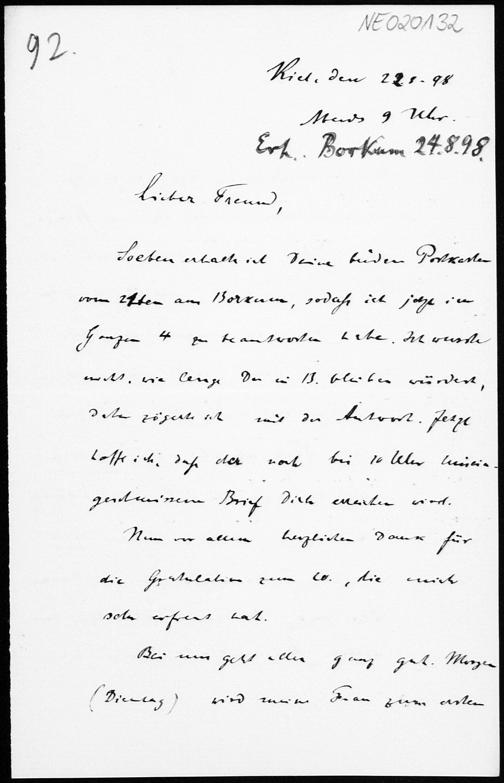 NE020132
92.
Kiel, den 22 8. 98
Abends 9 Uhr.
Erh. Borkum 24.8.98.
Lieber Freund,
Soeben erhalte ich Deine beiden Postkarten
vom 21ten aus Borkum, sodaß ich jetzt im
Ganzen 4 zu beantworten habe. Ich wusste
nicht, wie lange Du in B. bleiben würdest,
daher zögerte ich mit der Antwort. Jetzt
hoffe ich, daß der noch bis 10 Uhr hinein-
geschmissene Brief Dich erreichen wird.
Nun vor allem herzlichen Dank für
die Gratulation zum , die mich
sehr erfreut hat.
Bei uns geht alles ganz gut. Morgen
(Dienstag) wird meine Frau zum ersten